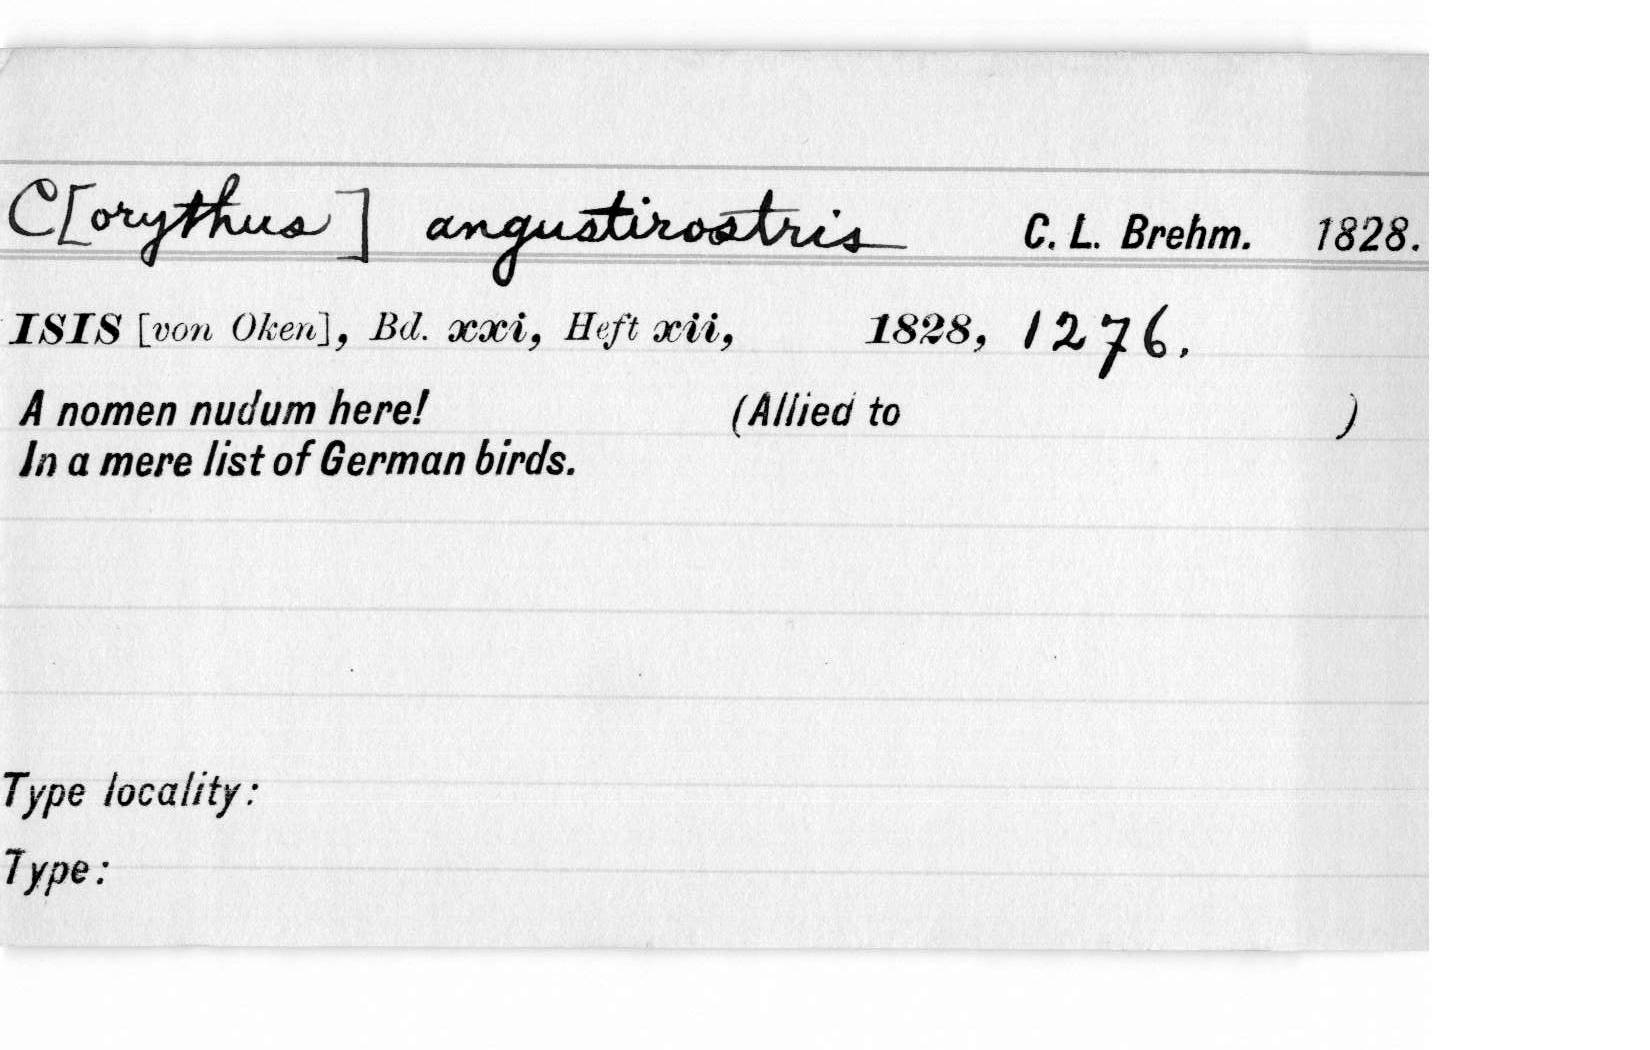 C[orythus] angustirostris C. L. Brehm. 1828.
ISIS [von Oken], Bd. xxi, Heft xii, 1828, 1276.
A nomen nudum here! (Allied to )
In a mere list of German birds.
Type locality:
Type: